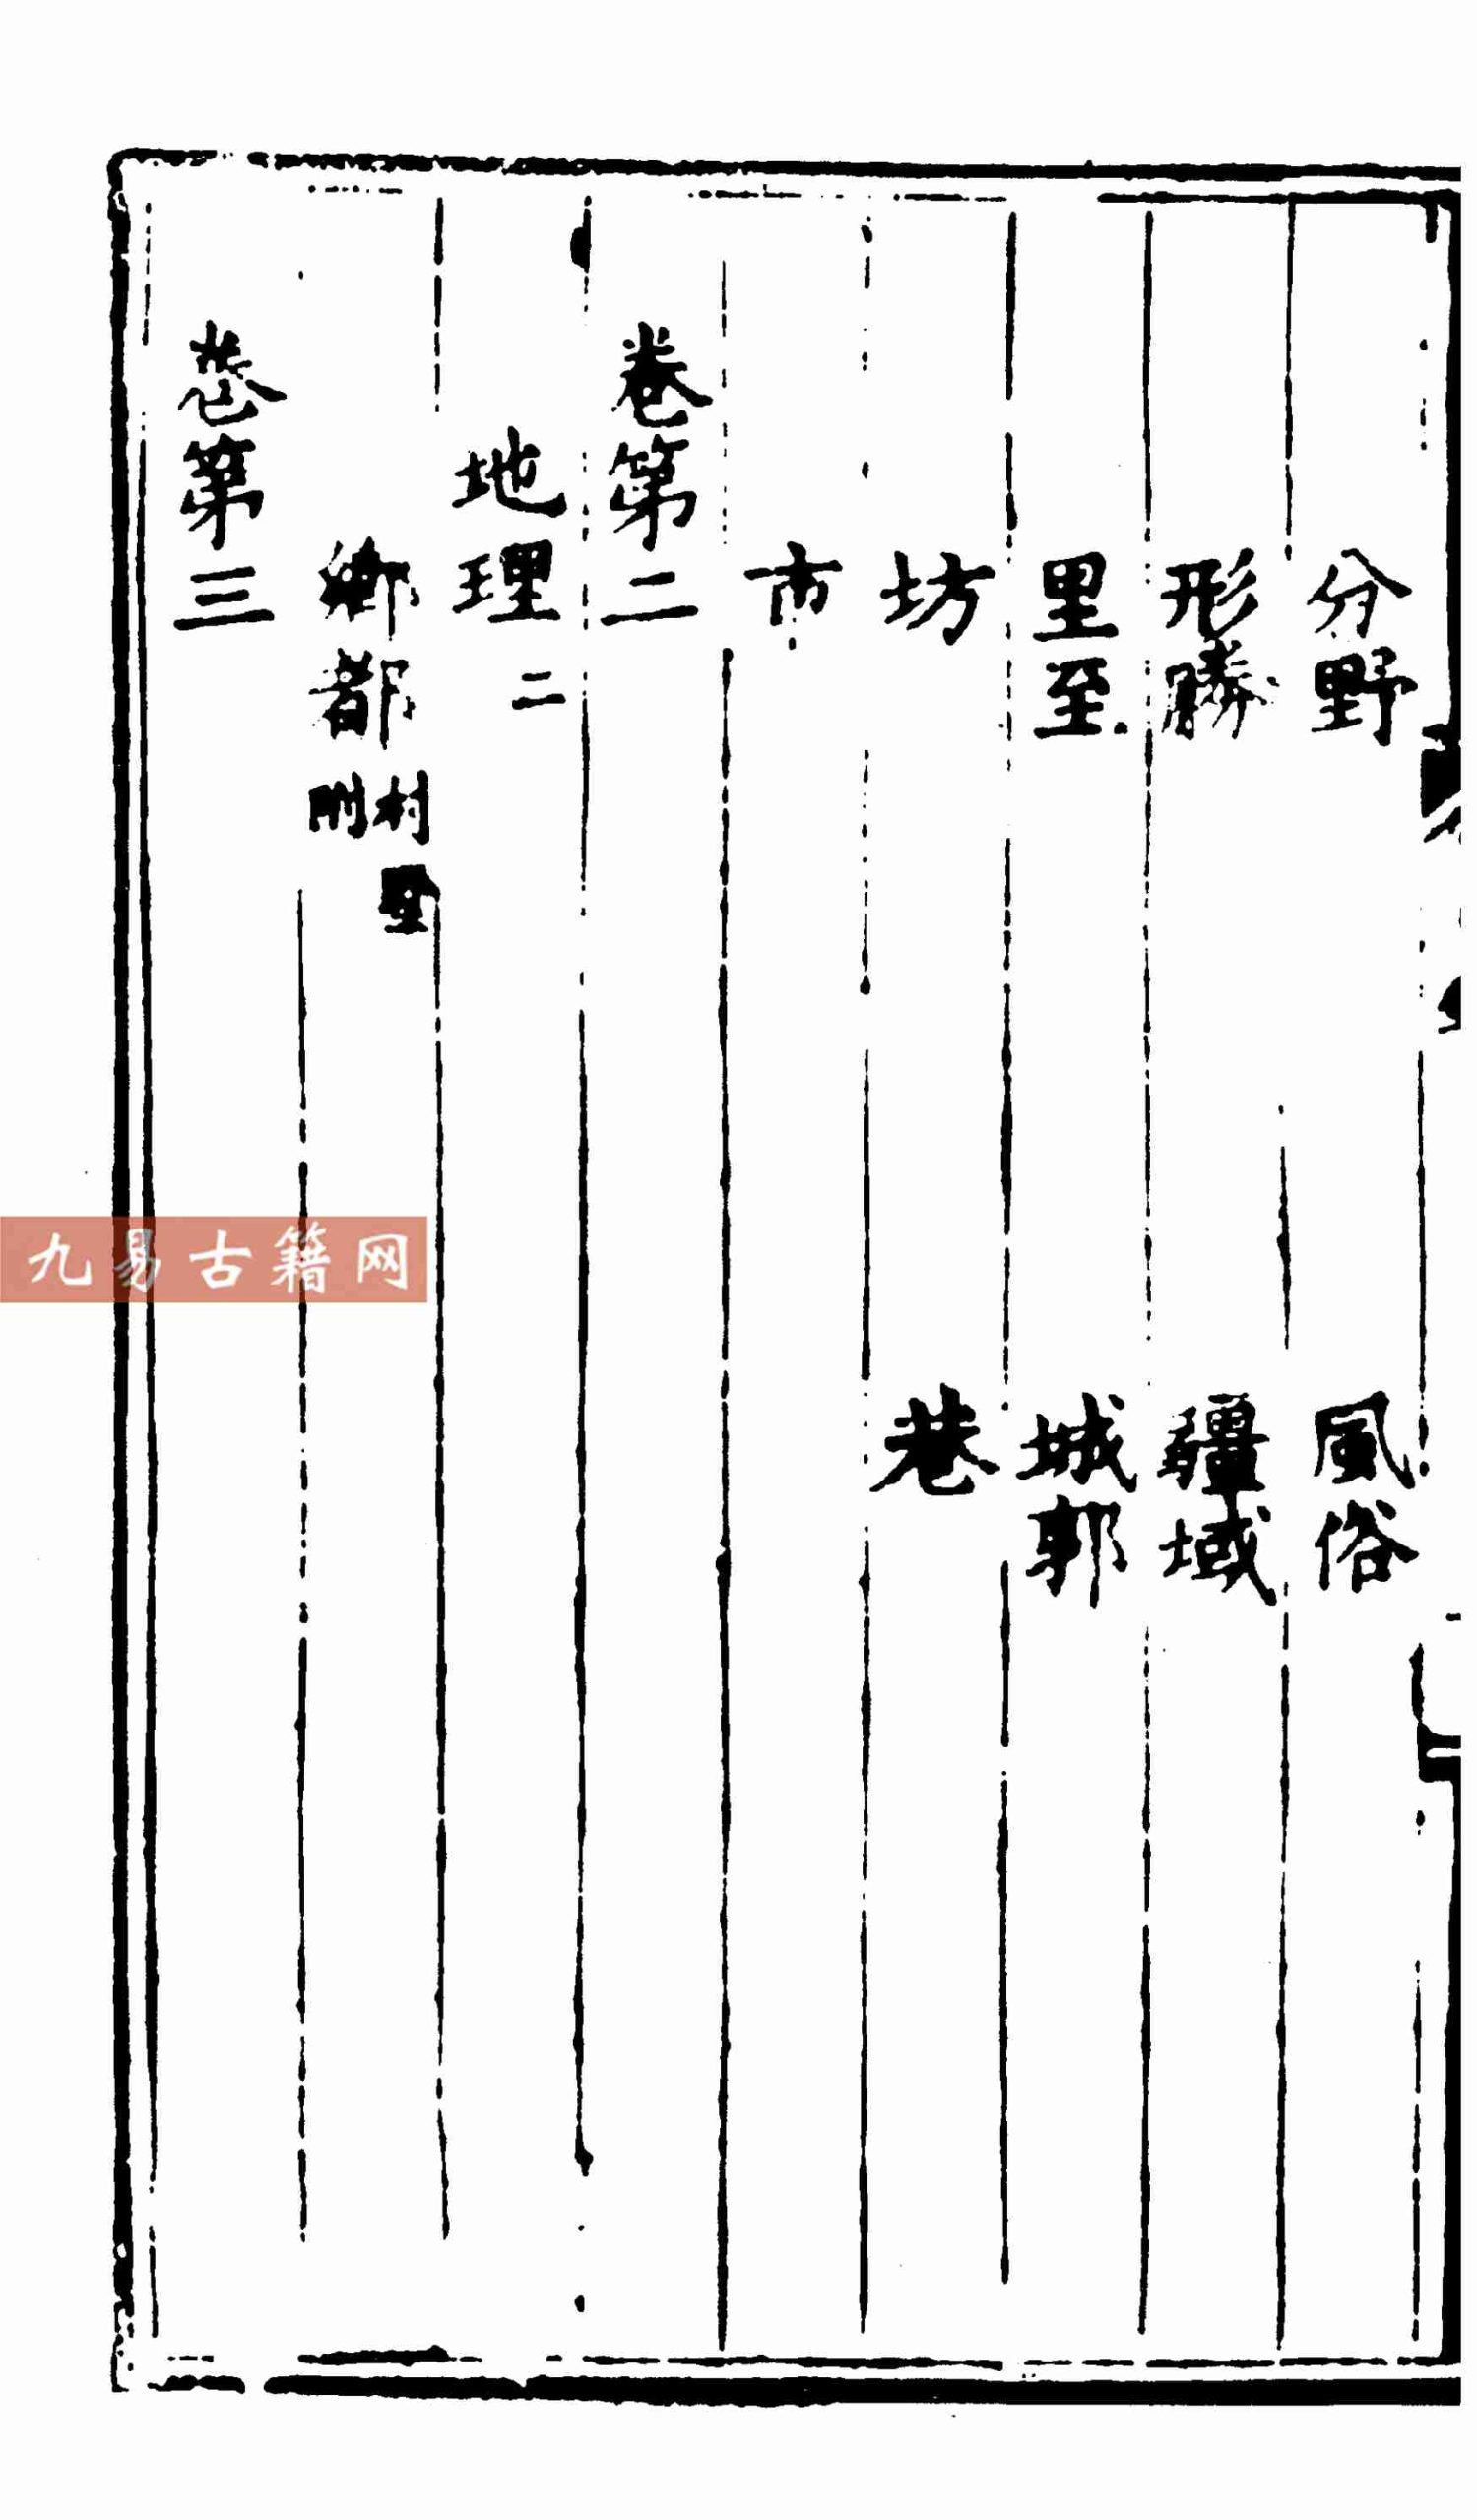 分野　風俗
形勝　疆域
里至　城郭
坊　巷
市
卷第二
地理二
鄉都村里附
卷第三
九易古籍网